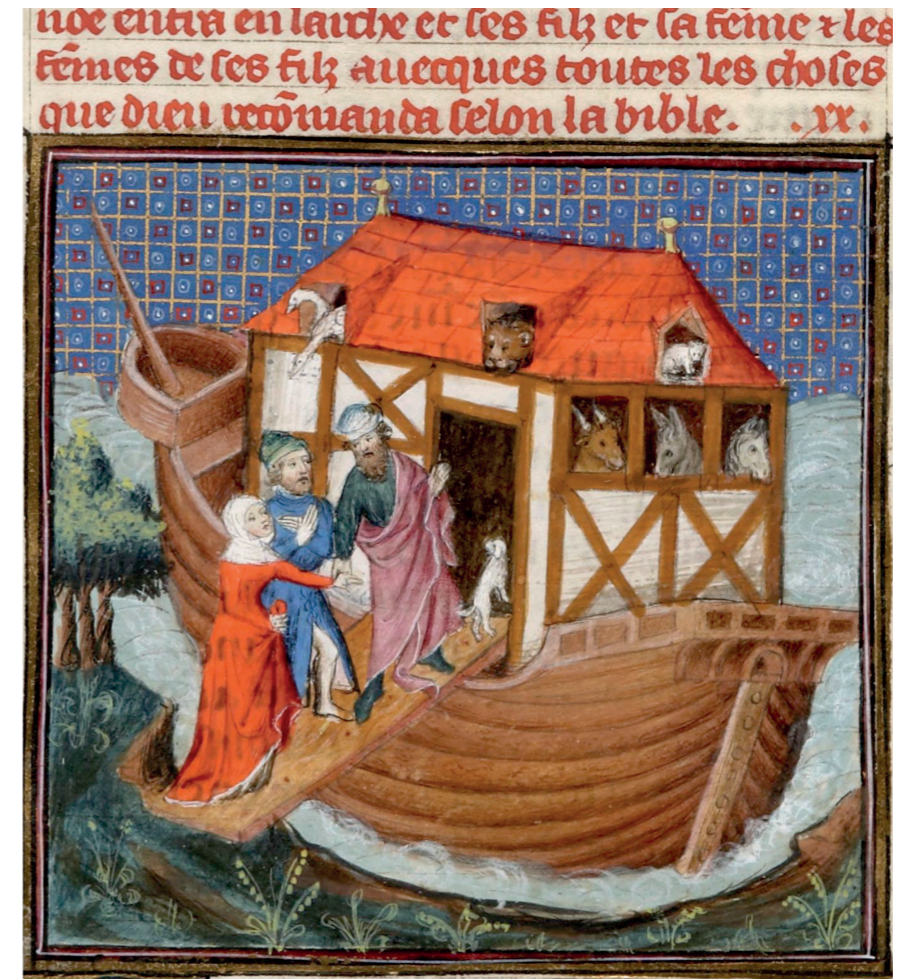 nōe entra en larche et ses filz et sa fēme ⁊ les
fēmes de ses filz auecques toutes les choses
que dieu recōmanda selon la bible. .xx.